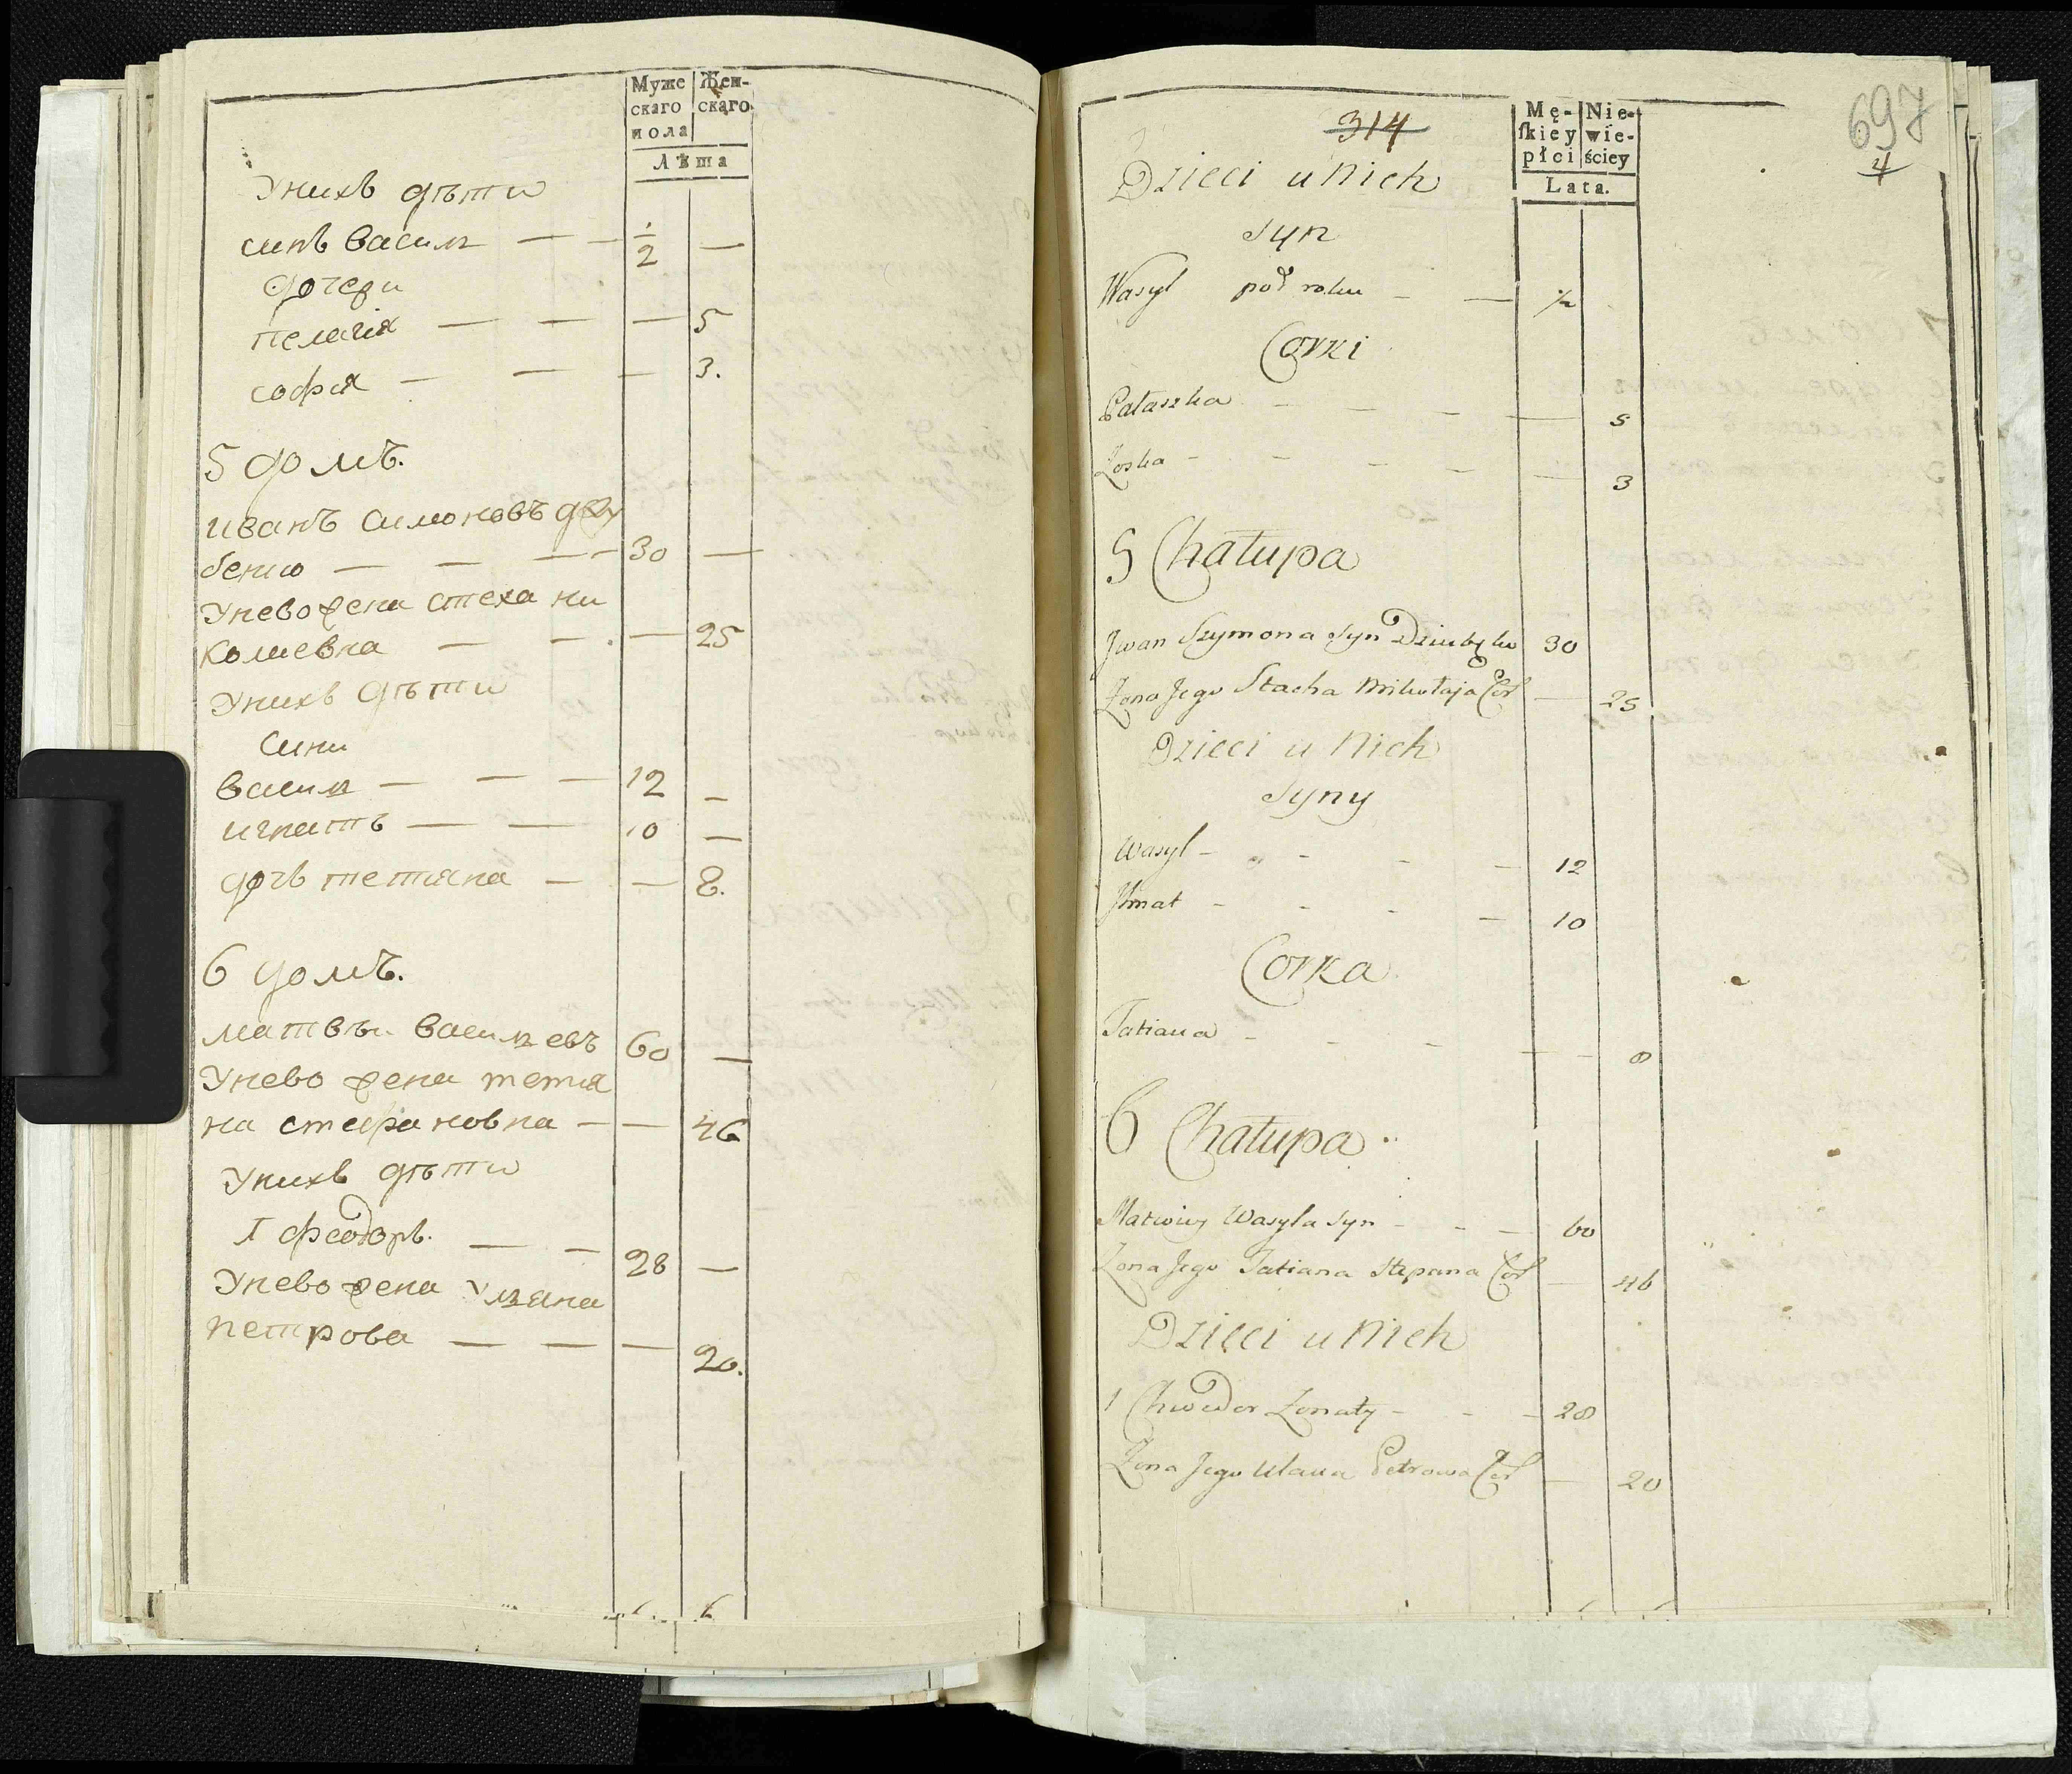 Муже
скаго
пола
Жен-
скаго
Лѣта
Унихъ дѣти
синъ василь — — 1/2 —
дочери
пелагія — — — 5
софия — — — 3.
5 домъ.
иванъ симоновъ дзю
бенко — — — 30 —
Унево жена стеха ни
колиевна — — — 25
Унихъ дѣти
сини
василь — — — 12 —
игнатъ — — 10 —
дочь тетяна — — 8.
6 домъ.
матвѣи василевъ 60 —
Унево жена тетя
на стефановна — — 46
Унихъ дѣти
1 феодоръ. — — 28 —
Унево жена уляна
петрова — — — 20.
6 6
314
697
4
Mę-
skiey
płci
Nie-
wie-
ściey
Lata.
Dzieci u Nich
Syn
Wasyl pod rokiem — — 1/2
Corki
Pałaszka - — — — — 5
Zoska - - - - — 3
5 Chałupa
Jwan Szymona Syn 30
Zona Jego Stacha Mikołaja Cor — 25
Dzieci u Nich
Syny
Wasyl - - - - — 12
Jhnat - - - — 10
Corka
Tatiana - - - — - 8
6 Chałupa
Matwiey Wasyla Syn - - — 60
Zona Jego Tatiana Stepana Cor — 46
Dzieci u Nich
1 Chwedor Zonaty - - — 28
Zona Jego Ulana Petrowa Cor — 20